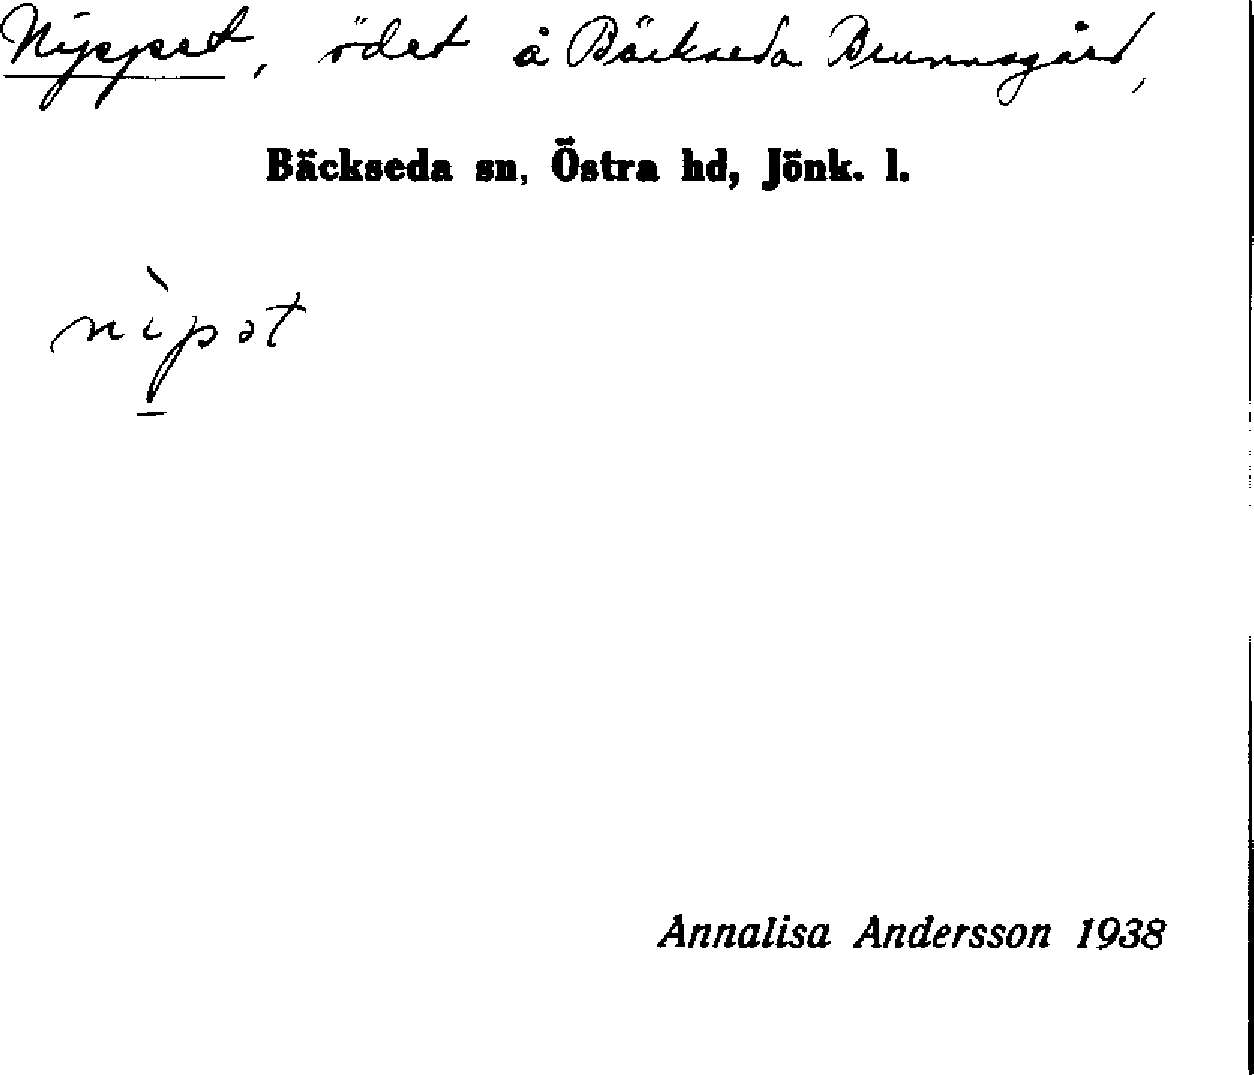 Nyppet, ödet å Bäckseda Brunnsgård,
Bäckseda sn, Östra hd, Jönk. l.
nìpət
Annalisa Andersson 1938